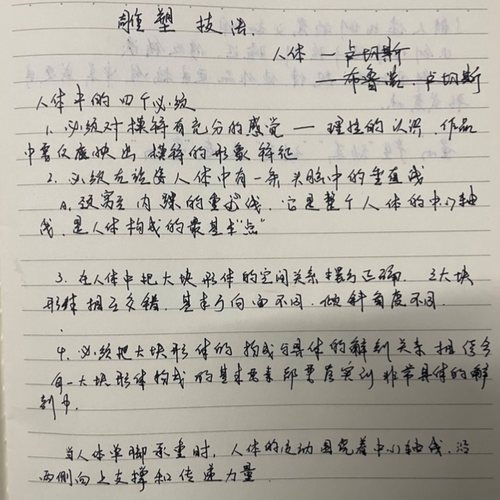 雕塑技法
人体 — 卢切斯
布鲁诺·卢切斯
人体中的四个必须
1. 必须对模特有充分的感觉 — 理性的认识. 作品
中要反应映出 模特的形象特征
2. 必须在站姿人体中有一条头脑中的垂直线
a. 这条在内踝的重线. 它是整个人体的中心轴
线. 是人体构成的最基本"点"
3. 在人体中把大块形体的空间关系摆正确. 三大块
形体相互交错. 基本方向面不同. 倾斜角度不同.
4. 必须把大块形体的构成与具体的解剖关系相结合
每一大块形体构成的基本要素都要落实到非常具体的解
剖中.
当人体单脚承重时, 人体的运动围绕着中心轴线, 沿
两侧向上支撑和传递力量